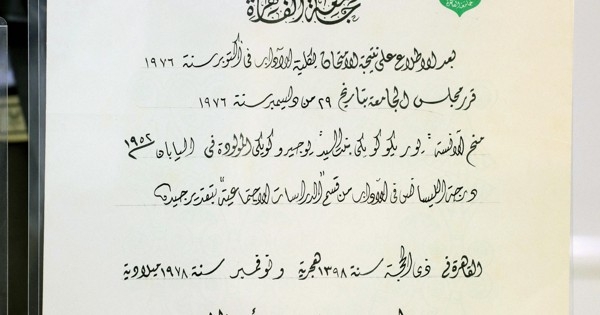 جامعة القاهرة
بعد الاطلاع على نتيجة الامتحان لكلية الآداب فى أكتوبر سنة ١٩٧٦
قرر مجلس الجامعة بتاريخ ٢٩ من ديسمبر سنة ١٩٧٦
منح الآنسة "يوريكو كويكى بنت السيد يوجيرو كويكى المولودة فى اليابان ١٩٥٢
درجة الليسانس فى الآداب من قسم "الدراسات الاجتماعية" بتقدير جيد
القاهرة فى ذى الحجة سنة ١٣٩٨ هجرية ونوفمبر سنة ١٩٧٨ ميلادية